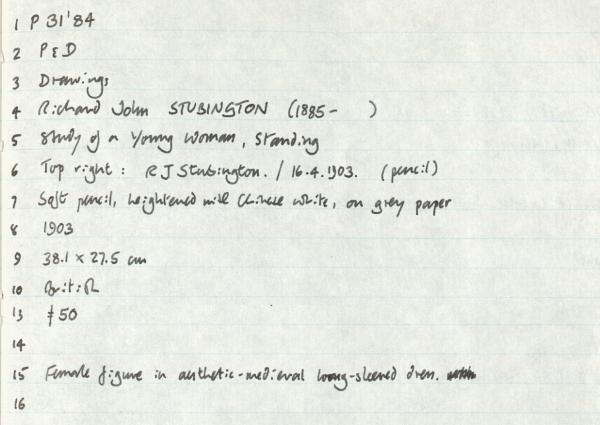 1 P 31'84
2 P & D
3 Drawings
4 Richard John STUBINGTON (1885-     )
5 Study of a Young Woman, Standing
6 Top right : R J Stubington. / 16.4.1903. (pencil)
7 Soft pencil, heightened with Chinese white, on grey paper
8 1903
9 38.1 x 27.5 cm
10 British
13 £50
14
15 Female figure in aesthetic-medieval long-sleeved dress.
16